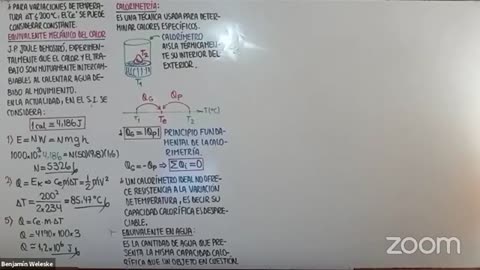 ↓ PARA VARIACIONES DE TEMPERA-
TURA ΔT ≤ 200°C, EL "Ce" SE PUEDE
CONSIDERAR CONSTANTE.
EQUIVALENTE MECÁNICO DEL CALOR
J.P. JOULE DEMOSTRÓ, EXPERIMEN-
TALMENTE QUE EL CALOR Y EL TRA-
BAJO SON MUTUAMENTE INTERCAM-
BIABLES AL CALENTAR AGUA DE-
BIDO AL MOVIMIENTO.
EN LA ACTUALIDAD, EN EL S.I. SE
CONSIDERA:
1 cal = 4.186 J
1) E = NW = Nmgh
N = 5326
2) Q = EK ⇒ CemΔT = ½mv²
ΔT = 200² / 2x234 = 85.47°C
5) Q = Ce·m·ΔT
Q = 4190x100x3
CALORIMETRÍA:
ES UNA TÉCNICA USADA PARA DETER-
MINAR CALORES ESPECÍFICOS.
CALORÍMETRO
AISLA TÉRMICAMENTE
SU INTERIOR DEL
EXTERIOR.
T2
T1
QG QP
T1 TE T2 T(°C)
QG = |QP| PRINCIPIO FUNDA-
MENTAL DE LA CALO-
RIMETRÍA.
QG = -QP ⇒ ΣQi = 0
↓ UN CALORÍMETRO IDEAL NO OFRE-
CE RESISTENCIA A LA VARIACIÓN
DE TEMPERATURA, ES DECIR SU
CAPACIDAD CALORÍFICA ES DESPRE-
CIABLE.
EQUIVALENTE EN AGUA:
ES LA CANTIDAD DE AGUA QUE PRE-
SENTA LA MISMA CAPACIDAD CALO-
RÍFICA QUE UN OBJETO EN CUESTIÓN
Benjamín Weleske
ZOOM